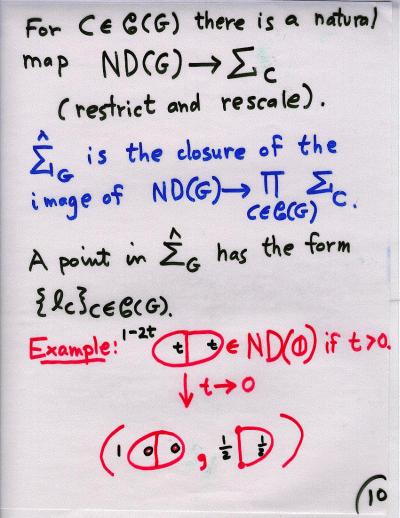 For C ∈ 𝒞(G) there is a natural
map ND(G) → Σ_C
(restrict and rescale).
Σ̂_G is the closure of the
image of ND(G) → Π Σ_C.
C∈𝒞(G)
A point in Σ̂_G has the form
{l_C}_{C∈𝒞(G)}.
Example: 1-2t t t ∈ ND(⦶) if t>0.
↓ t→0
( 1 0 0 , 1/2 1/2 )
10